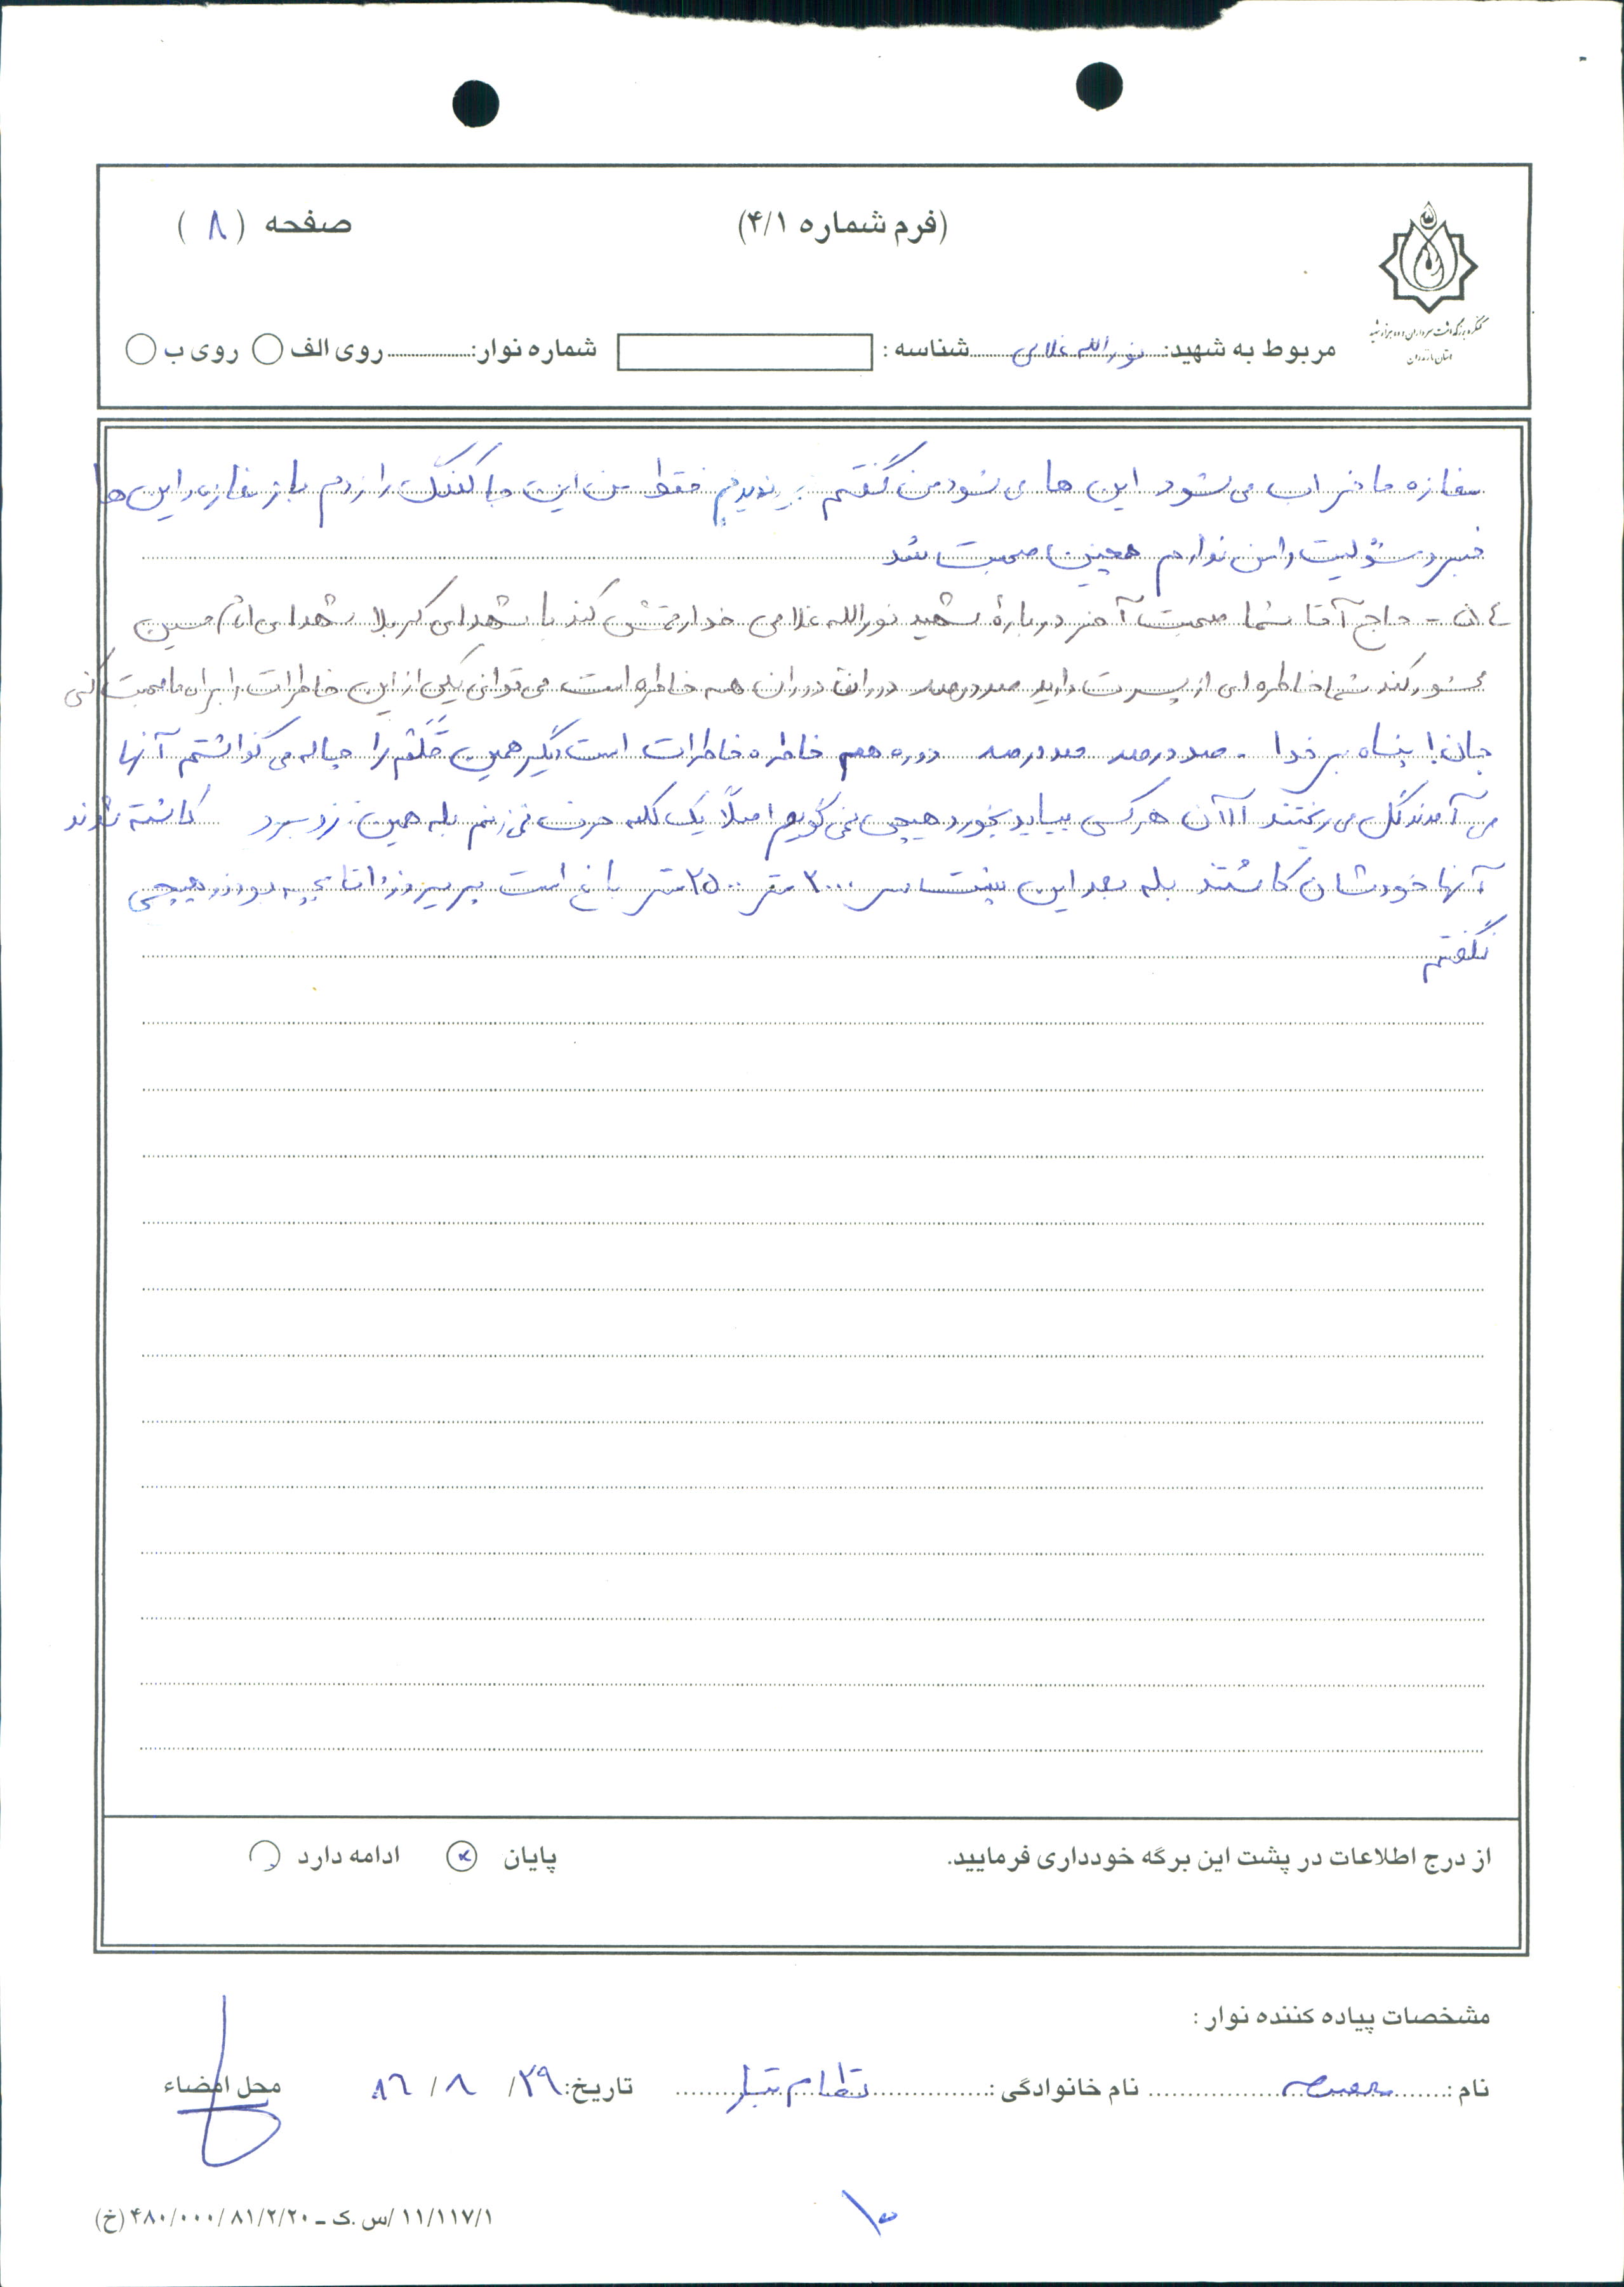 (فرم شماره ۴/۱)
صفحه (۸)
کنگره بزرگداشت سرداران و ده هزار شهید
استان مازندران
مربوط به شهید: نورالله غلامی شناسه: شماره نوار: روی الف روی ب
مغازه ما خراب می شود این ها می شود من گفتم فقط من این جا کلنگ را زدم باز مغازه این ها
همچین صحبت شد
۵۴ - حاج آقا شما صحبت آخر درباره شهید نورالله غلامی خدا رحمتش کند با شهدای کربلا شهدای امام حسین
محشور کند شما خاطره ای از پسرت دارید صد درصد دوران دوران همه خاطره است می توانی یکی از این خاطرات را برای ما صحبت کنی
جان! پناه بر خدا - صد درصد صد درصد دوره هم خاطره خاطرات است دیگر همین را می گذاشتم آنها
می آمدند گل می ریختند الآن هر کسی بیاید بخورد هیچی نمی گویم اصلاً یک کلمه حرف نمی زنم بله همین کاشته شدند
آنها خودشان کاشتند بله بعد این پشت سر ۳۰۰۰ متر ۲۵۰۰ متر باغ است پریروز هیچی
نگفتم
از درج اطلاعات در پشت این برگه خودداری فرمایید.
پایان ادامه دارد
مشخصات پیاده کننده نوار:
نام: معصومه نام خانوادگی: تاریخ: ۲۹/ ۸/ ۸۶ محل امضاء
۱۰
۱۱/۱۱۷/۱/س.ک ـ ۴۸۰/۰۰۰/۸۱/۲/۲۰(خ)